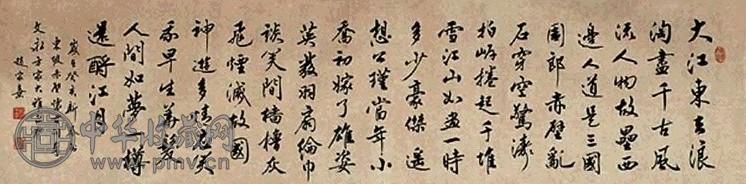 大江東去浪
淘盡千古風
流人物故壘西
邊人道是三國
周郎赤壁亂
石穿空驚濤
拍岸捲起千堆
雪江山如畫一時
多少豪傑遙
想公瑾當年小
喬初嫁了雄姿
英發羽扇綸巾
談笑間檣櫓灰
飛煙滅故國
神遊多情應笑
我早生華髮
人間如夢一樽
還酹江月
歲在癸亥
東坡赤壁懷
方家大雅
中华收藏网